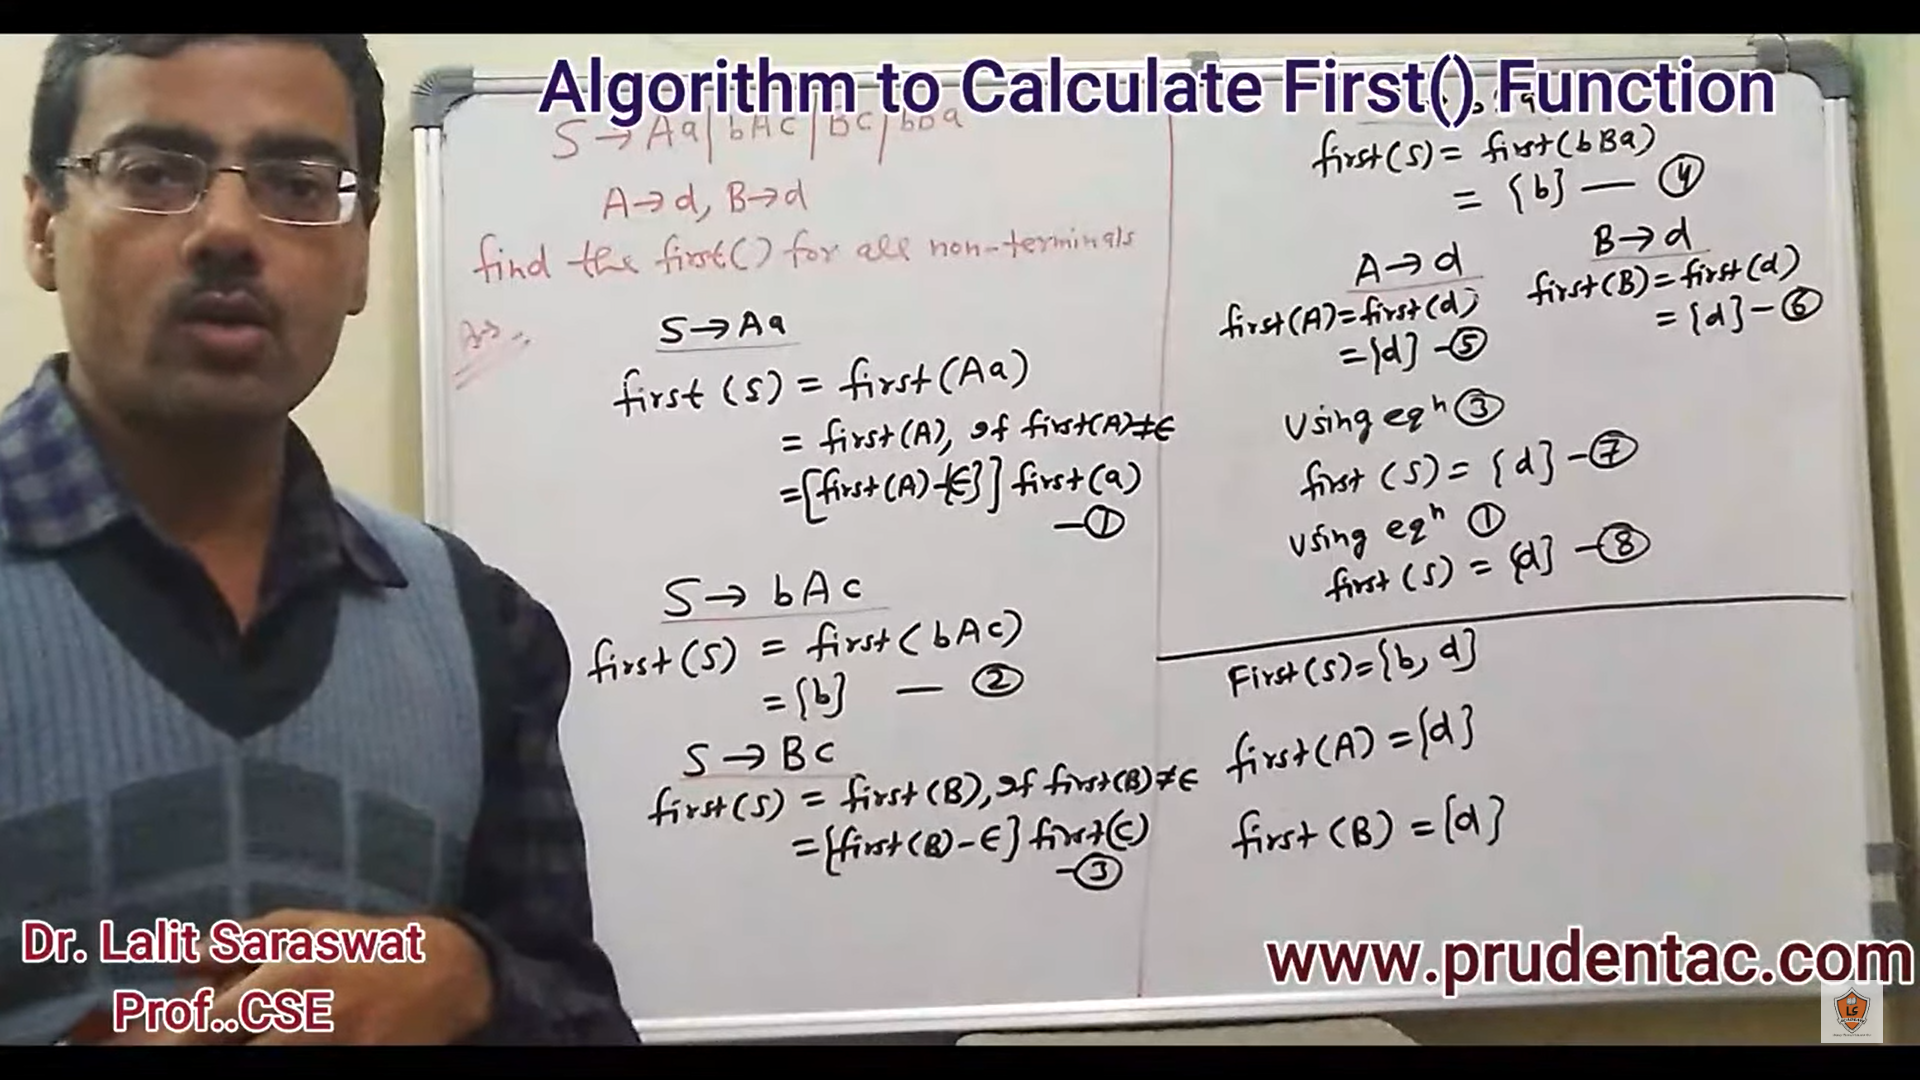 Algorithm to Calculate First() Function
S → Aa | bAc | Bc | bBa
A → d, B → d
find the first() for all non-terminals
S → Aa
first (S) = first (Aa)
= first (A), If first(A) ≠ ϵ
= [first(A) - {ϵ}] first(a)
— ①
S → bAc
first (S) = first ( bAc)
= {b} — ②
S → Bc
first (S) = first (B), If first(B) ≠ ϵ
= {first(B) - ϵ} first(c)
— ③
first (S) = first (bBa)
= {b} — ④
A → d
first(A) = first (d)
= {d} — ⑤
B → d
first(B) = first (d)
= {d} — ⑥
Using eqⁿ ③
first (S) = {d} — ⑦
using eqⁿ ①
first (S) = {d} — ⑧
First (S) = {b, d}
first (A) = {d}
first (B) = {d}
Dr. Lalit Saraswat
Prof..CSE
www.prudentac.com